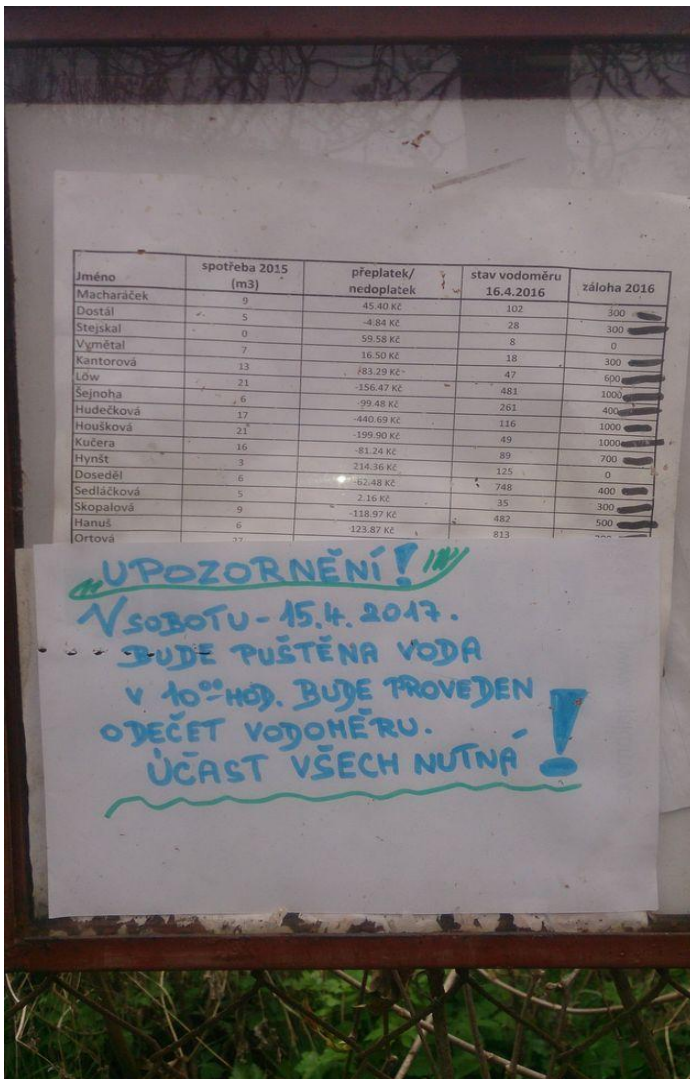 Jméno spotřeba 2015 (m3) přeplatek/ nedoplatek stav vodoměru 16.4.2016 záloha 2016
Macharáček 9 45.40 Kč 102 300
Dostál 5 -4.84 Kč 28 300
Stejskal 0 59.58 Kč 8 0
Vymětal 7 16.50 Kč 18 300
Kantorová 13 -83.29 Kč 47 600
Löw 21 -156.47 Kč 481 1000
Šejnoha 6 -99.48 Kč 261 400
Hudečková 17 -440.69 Kč 116 1000
Houšková 21 -199.90 Kč 49 1000
Kučera 16 -81.24 Kč 89 700
Hynšt 3 214.36 Kč 125 0
Doseděl 6 -62.48 Kč 748 400
Sedláčková 5 2.16 Kč 35 300
Skopalová 9 -118.97 Kč 482 500
Hanuš 6 -123.87 Kč 813
Ortová
UPOZORNĚNÍ!
V SOBOTU - 15.4. 2017.
BUDE PUŠTĚNA VODA
V 10⁰⁰ HOD. BUDE PROVEDEN
ODEČET VODOMĚRU.
ÚČAST VŠECH NUTNÁ!